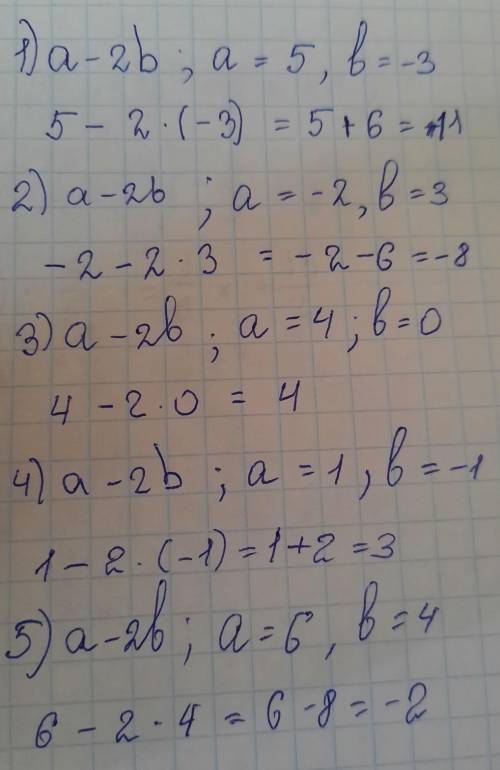 1) a - 2b ; a = 5, b = -3
5 - 2 · (-3) = 5 + 6 = 11
2) a - 2b ; a = -2, b = 3
-2 - 2 · 3 = -2 - 6 = -8
3) a - 2b ; a = 4 ; b = 0
4 - 2 · 0 = 4
4) a - 2b ; a = 1, b = -1
1 - 2 · (-1) = 1 + 2 = 3
5) a - 2b ; a = 6, b = 4
6 - 2 · 4 = 6 - 8 = -2